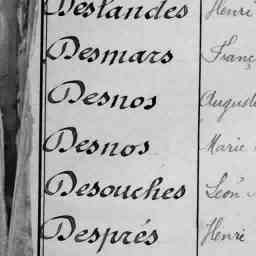 Deslandes Henri
Desmars Franç
Desnos Auguste
Desnos Marie
Desouches Léon
Després Henri